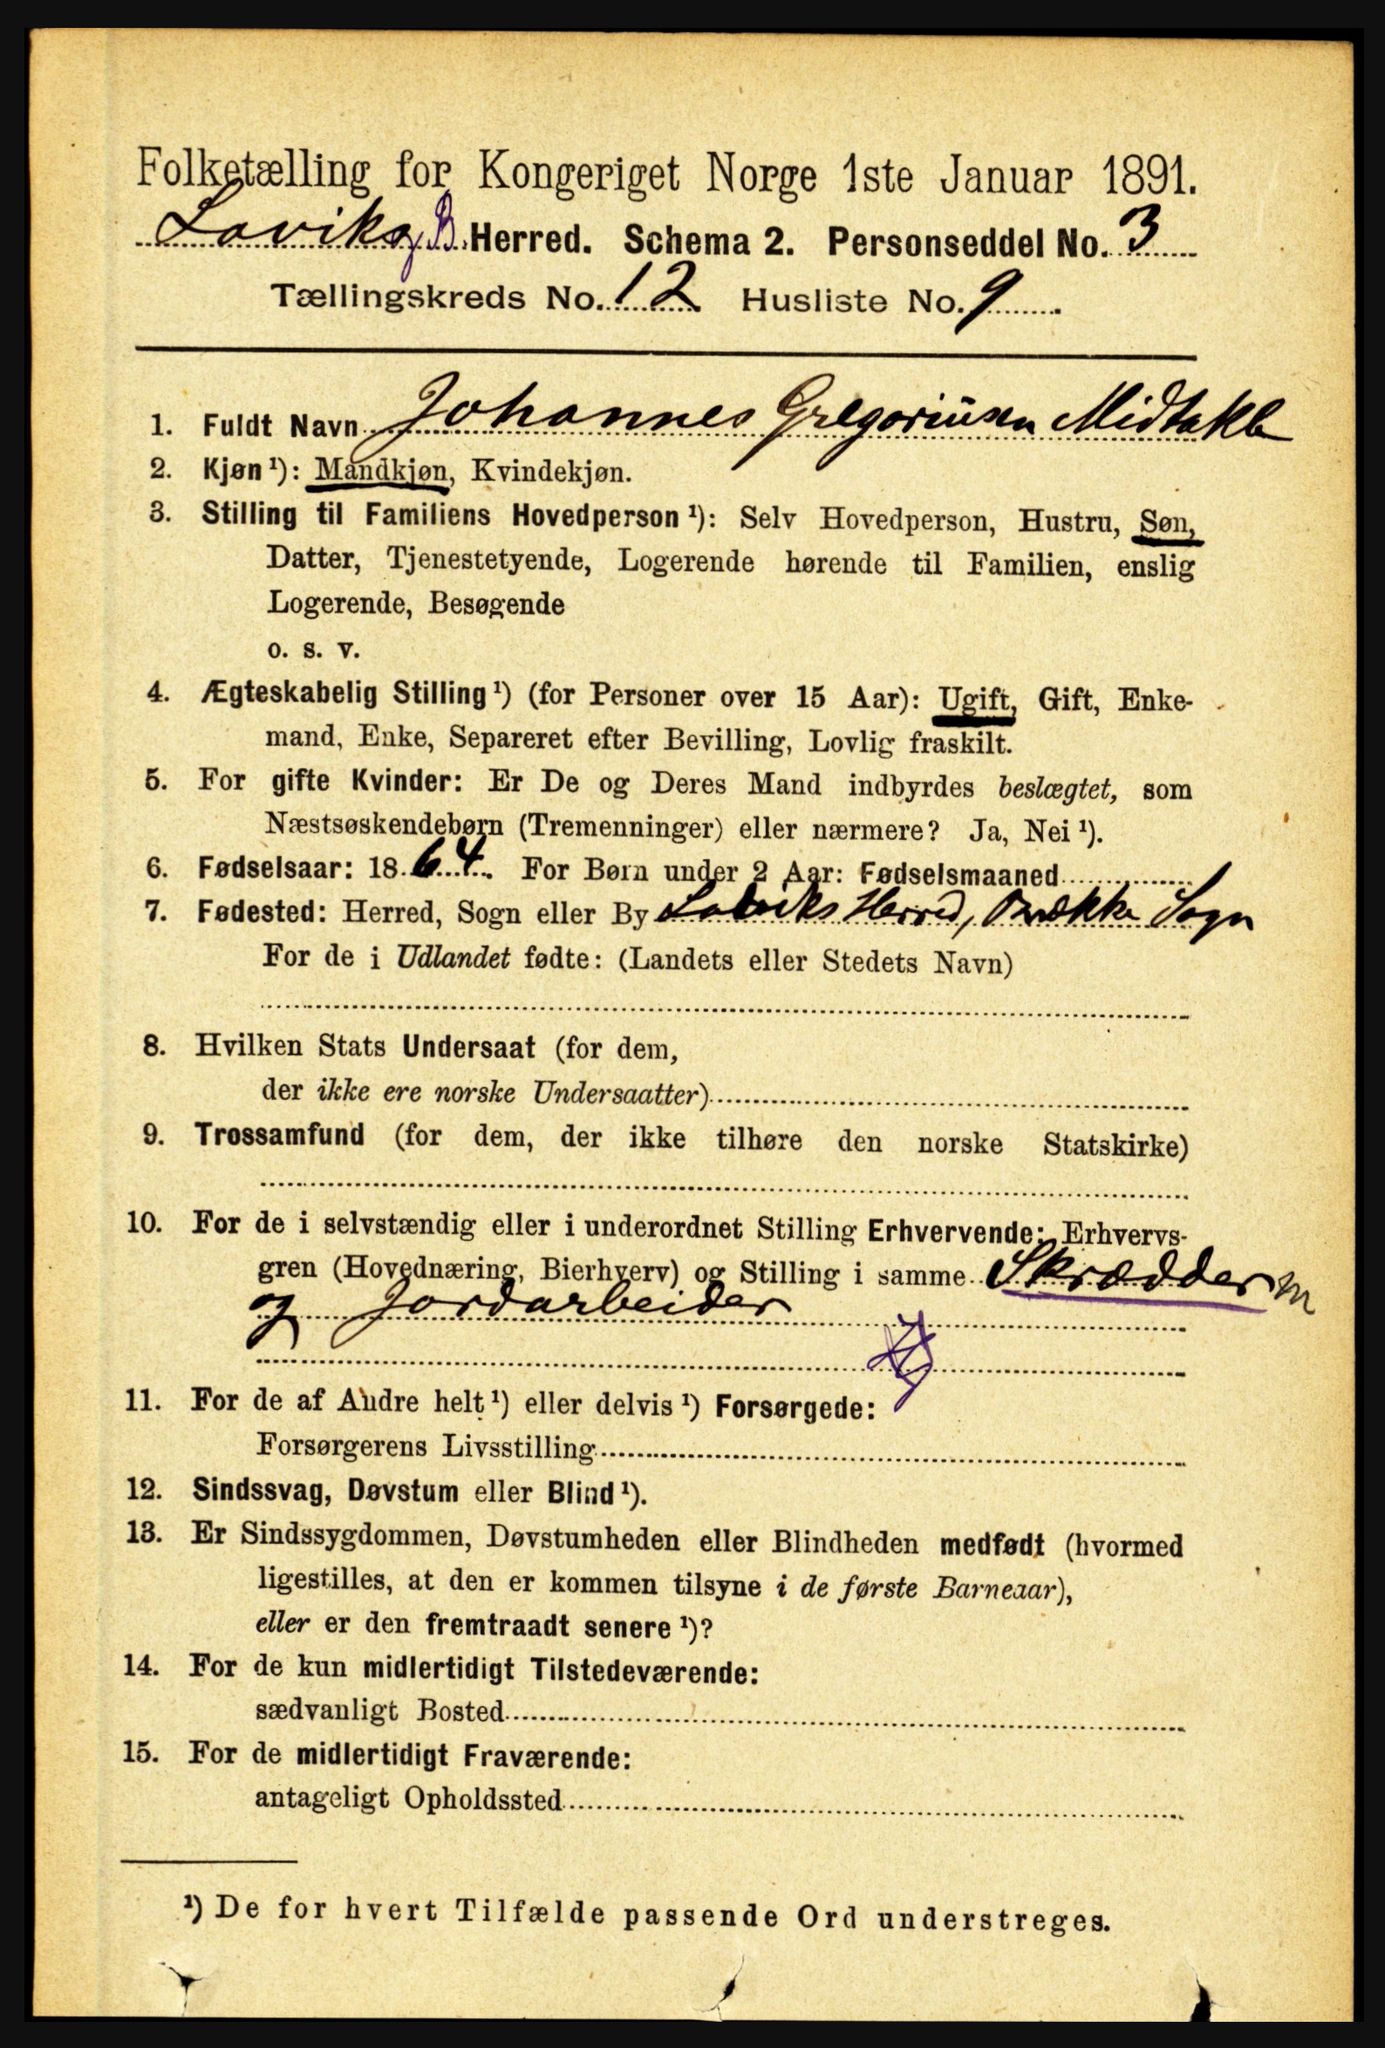 Folketælling for Kongeriget Norge 1ste Januar 1891.
Laviks og B. Herred. Schema 2. Personseddel No. 3
Tællingskreds No. 12 Husliste No. 9
1. Fuldt Navn Johannes Gregoriusen Midtakle
2. Kjøn ¹): Mandkjøn, Kvindekjøn.
3. Stilling til Familiens Hovedperson ¹): Selv Hovedperson, Hustru, Søn,
Datter, Tjenestetyende, Logerende hørende til Familien, enslig
Logerende, Besøgende
o. s. v.
4. Ægteskabelig Stilling ¹) (for Personer over 15 Aar): Ugift, Gift, Enke-
mand, Enke, Separeret efter Bevilling, Lovlig fraskilt.
5. For gifte Kvinder: Er De og Deres Mand indbyrdes beslægtet, som
Næstsøskendebørn (Tremenninger) eller nærmere? Ja, Nei ¹).
6. Fødselsaar: 1864. For Børn under 2 Aar: Fødselsmaaned
7. Fødested: Herred, Sogn eller By Laviks Herred, Brække Sogn
For de i Udlandet fødte: (Landets eller Stedets Navn)
8. Hvilken Stats Undersaat (for dem,
der ikke ere norske Undersaatter)
9. Trossamfund (for dem, der ikke tilhøre den norske Statskirke)
10. For de i selvstændig eller i underordnet Stilling Erhvervende: Erhvervs-
gren (Hovednæring, Bierhverv) og Stilling i samme Skrædder m
og Jordarbeider
11. For de af Andre helt ¹) eller delvis ¹) Forsørgede:
Forsørgerens Livsstilling
12. Sindssvag, Døvstum eller Blind ¹).
13. Er Sindssygdommen, Døvstumheden eller Blindheden medfødt (hvormed
ligestilles, at den er kommen tilsyne i de første Barneaar),
eller er den fremtraadt senere ¹)?
14. For de kun midlertidigt Tilstedeværende:
sædvanligt Bosted
15. For de midlertidigt Fraværende:
antageligt Opholdssted
¹) De for hvert Tilfælde passende Ord understreges.